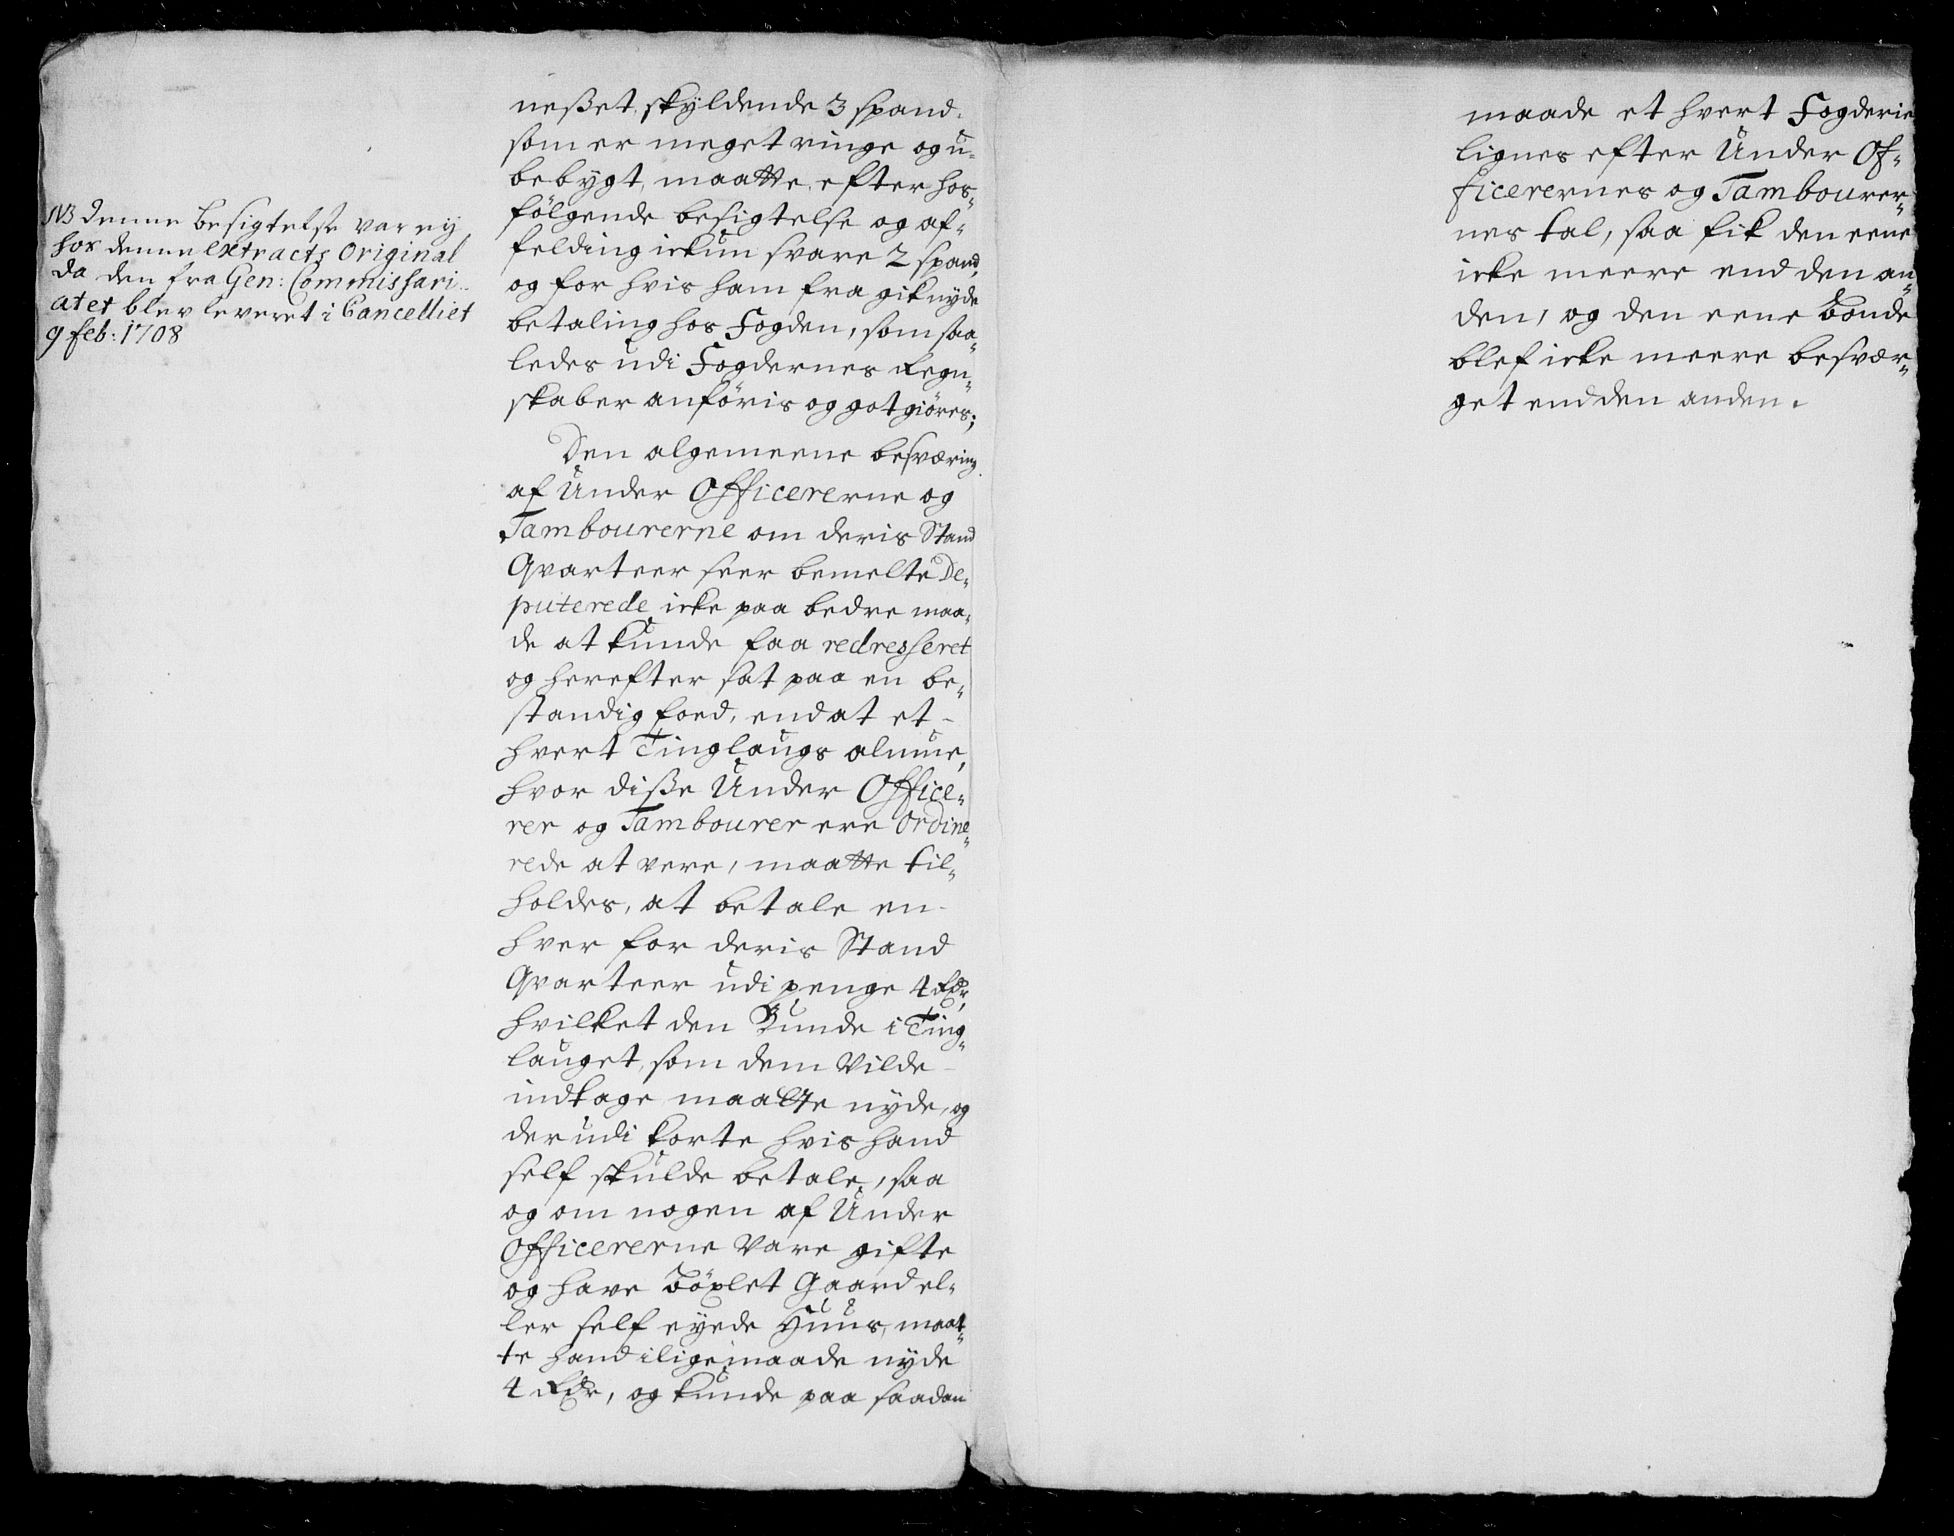 NB denne besigtelse var ey
hos denne Extracts Original
da den fra Gen: Commissari-
atet blev leveret i Cancelliet
9 feb: 1708
neßet, skyldende 3 spand,
som er meget ringe og u-
bebygt, maatte, efter hos-
følgende besigtelse og af-
felding ickun svare 2 spand,
og for hvis ham fra gik nyde
betaling hos Fogden, som saa-
ledes udi Fogdernes Regn-
skaber anföris og gotgiöres;
Den algemeene besværing
af Under Officererne og
Tambourerne om deris Stand
Qvarteer seer bemelte De-
puterede icke paa bedre maa-
de at kunde faa redresseret
og herefter sat paa en be-
standig foed, end at et-
hvert Tinglaugs almue,
hvor diße Under Office-
rer og Tambourer ere Ordine-
rede at vere, maatte til-
holdes, at betale en-
hver for deris Stand
Qvarteer udi penge 4 Rdr,
hvilket den Bunde i Ting-
lauget, som dem Vilde
indtage maatte nyde, og
der udi korte hvis hand
self skulde betale, saa
og om nogen af Under
Officererne Vare gifte
og have Böxlet Gaard el-
ler self eyede Huus, maat-
te hand i ligemaade nyde
4 Rdr, og kunde paa saadan
maade et hvert Fogderie
lignes efter Under Of-
ficerernes og Tambourer-
nes tal, saa fik den eene
icke meere end den an-
den, og den eene Bonde
blef icke meere besvær-
get end den anden.